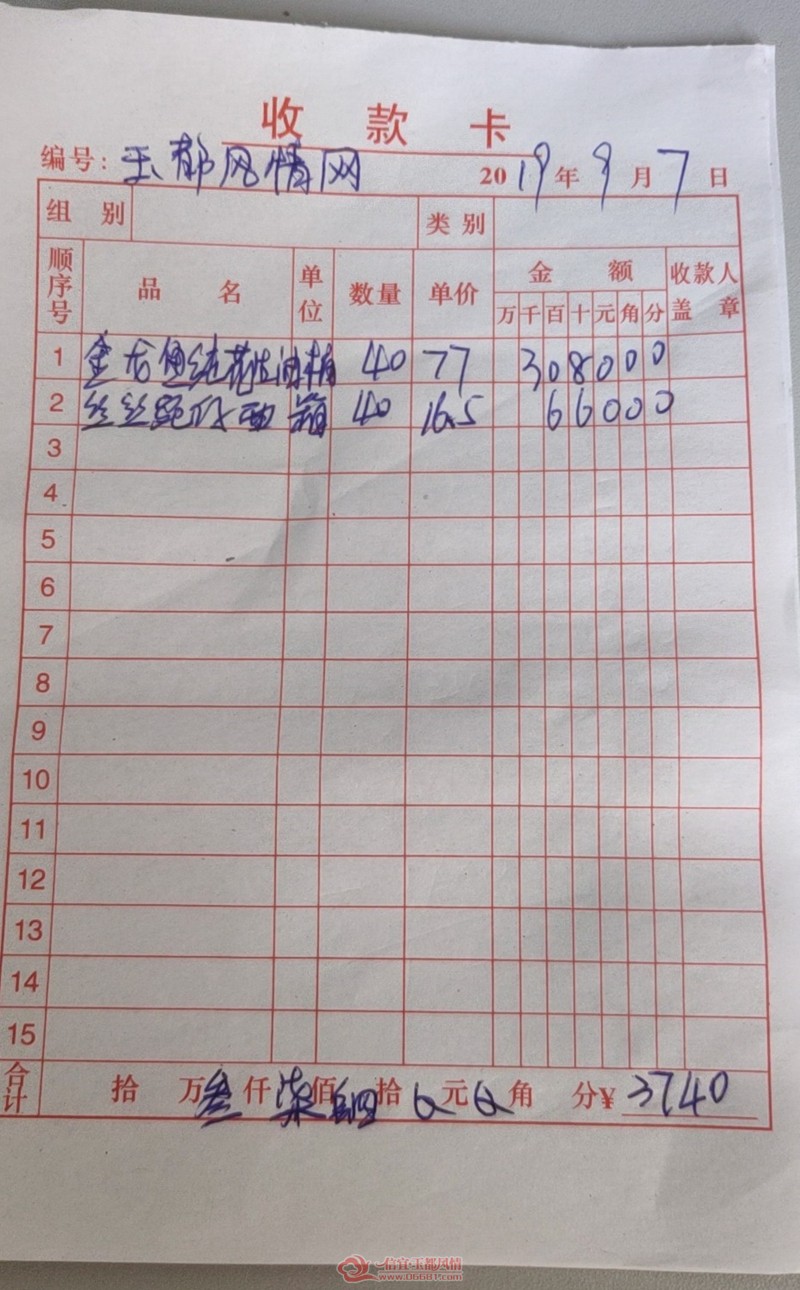 收款卡
编号: 玉都风情网 2019年9月7日
组别 类别
顺序号 品名 单位 数量 单价 金额 收款人盖章
万 千 百 十 元 角 分
1 金龙鱼纯花生油 桶 40 77 308000
2 丝丝 箱 40 16.5 66000
3
4
5
6
7
8
9
10
11
12
13
14
15
合计 拾 万 叁 仟 柒 佰 肆 拾 元 角 分 ¥3740
信宜玉都风情
www.06681.com